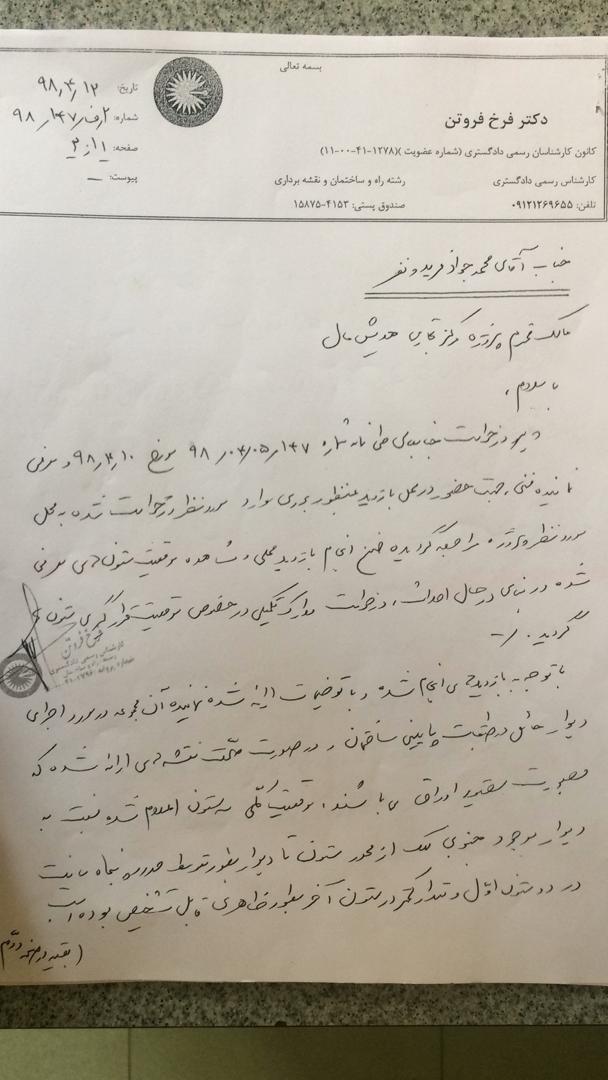 بسمه تعالی
تاریخ: ۹۸٫۴٫۱۲
شماره: ۲رف ر۱۴۷ر ۹۸
صفحه: ۱ از ۲
پیوست: –
دکتر فرخ فروتن
کانون کارشناسان رسمی دادگستری (شماره عضویت )(۱۲۷۸-۴۱-۰۰-۱۱)
کارشناس رسمی دادگستری
رشته راه و ساختمان و نقشه برداری
تلفن: ۰۹۱۲۱۲۶۹۶۵۵
صندوق پستی: ۴۱۵۳-۱۵۸۷۵
جناب آقای محمد جواد فریدونفر
مالک محترم پروژه مرکز تجاری هدیش مال
با سلام ،
پیرو درخواست جنابعالی طی نامه شماره ۱۴۷ر۰۵ر۰۴ر ۹۸ مورخ ۹۸٫۴٫۱۰ و معرفی
نماینده فنی جهت حضور در محل بازدید بمنظور بررسی موارد مورد نظر و درخواست شده به محل
مورد نظر و پروژه مراجعه گردیده ضمن انجام بازدید محلی و مشاهده موقعیت ستون های معرفی
شده در نمای در حال احداث ، درخواست مدارک تکمیلی در خصوص موقعیت قرارگیری ستون ها
گردید .
فرخ فروتن
کارشناس رسمی دادگستری
با توجه به بازدیدهای انجام شده و با توضیحات ارائه شده نماینده آن مجموعه در مورد اجرای
دیوار حائل در طبقات پایینی ساختمان و در صورت صحت نقشه های ارائه شده که
ممهور به مهر اوراق می باشند ، موقعیت کلی سه ستون اعلام شده نسبت به
دیوار موجود جنوبی ملک از محور ستون تا دیوار بطور متوسط حدود پنجاه سانت
در دو ستون اول و مقدار کمتر در ستون آخر بطور ظاهری قابل تشخیص بوده است
(بقیه در صفحه دوم)